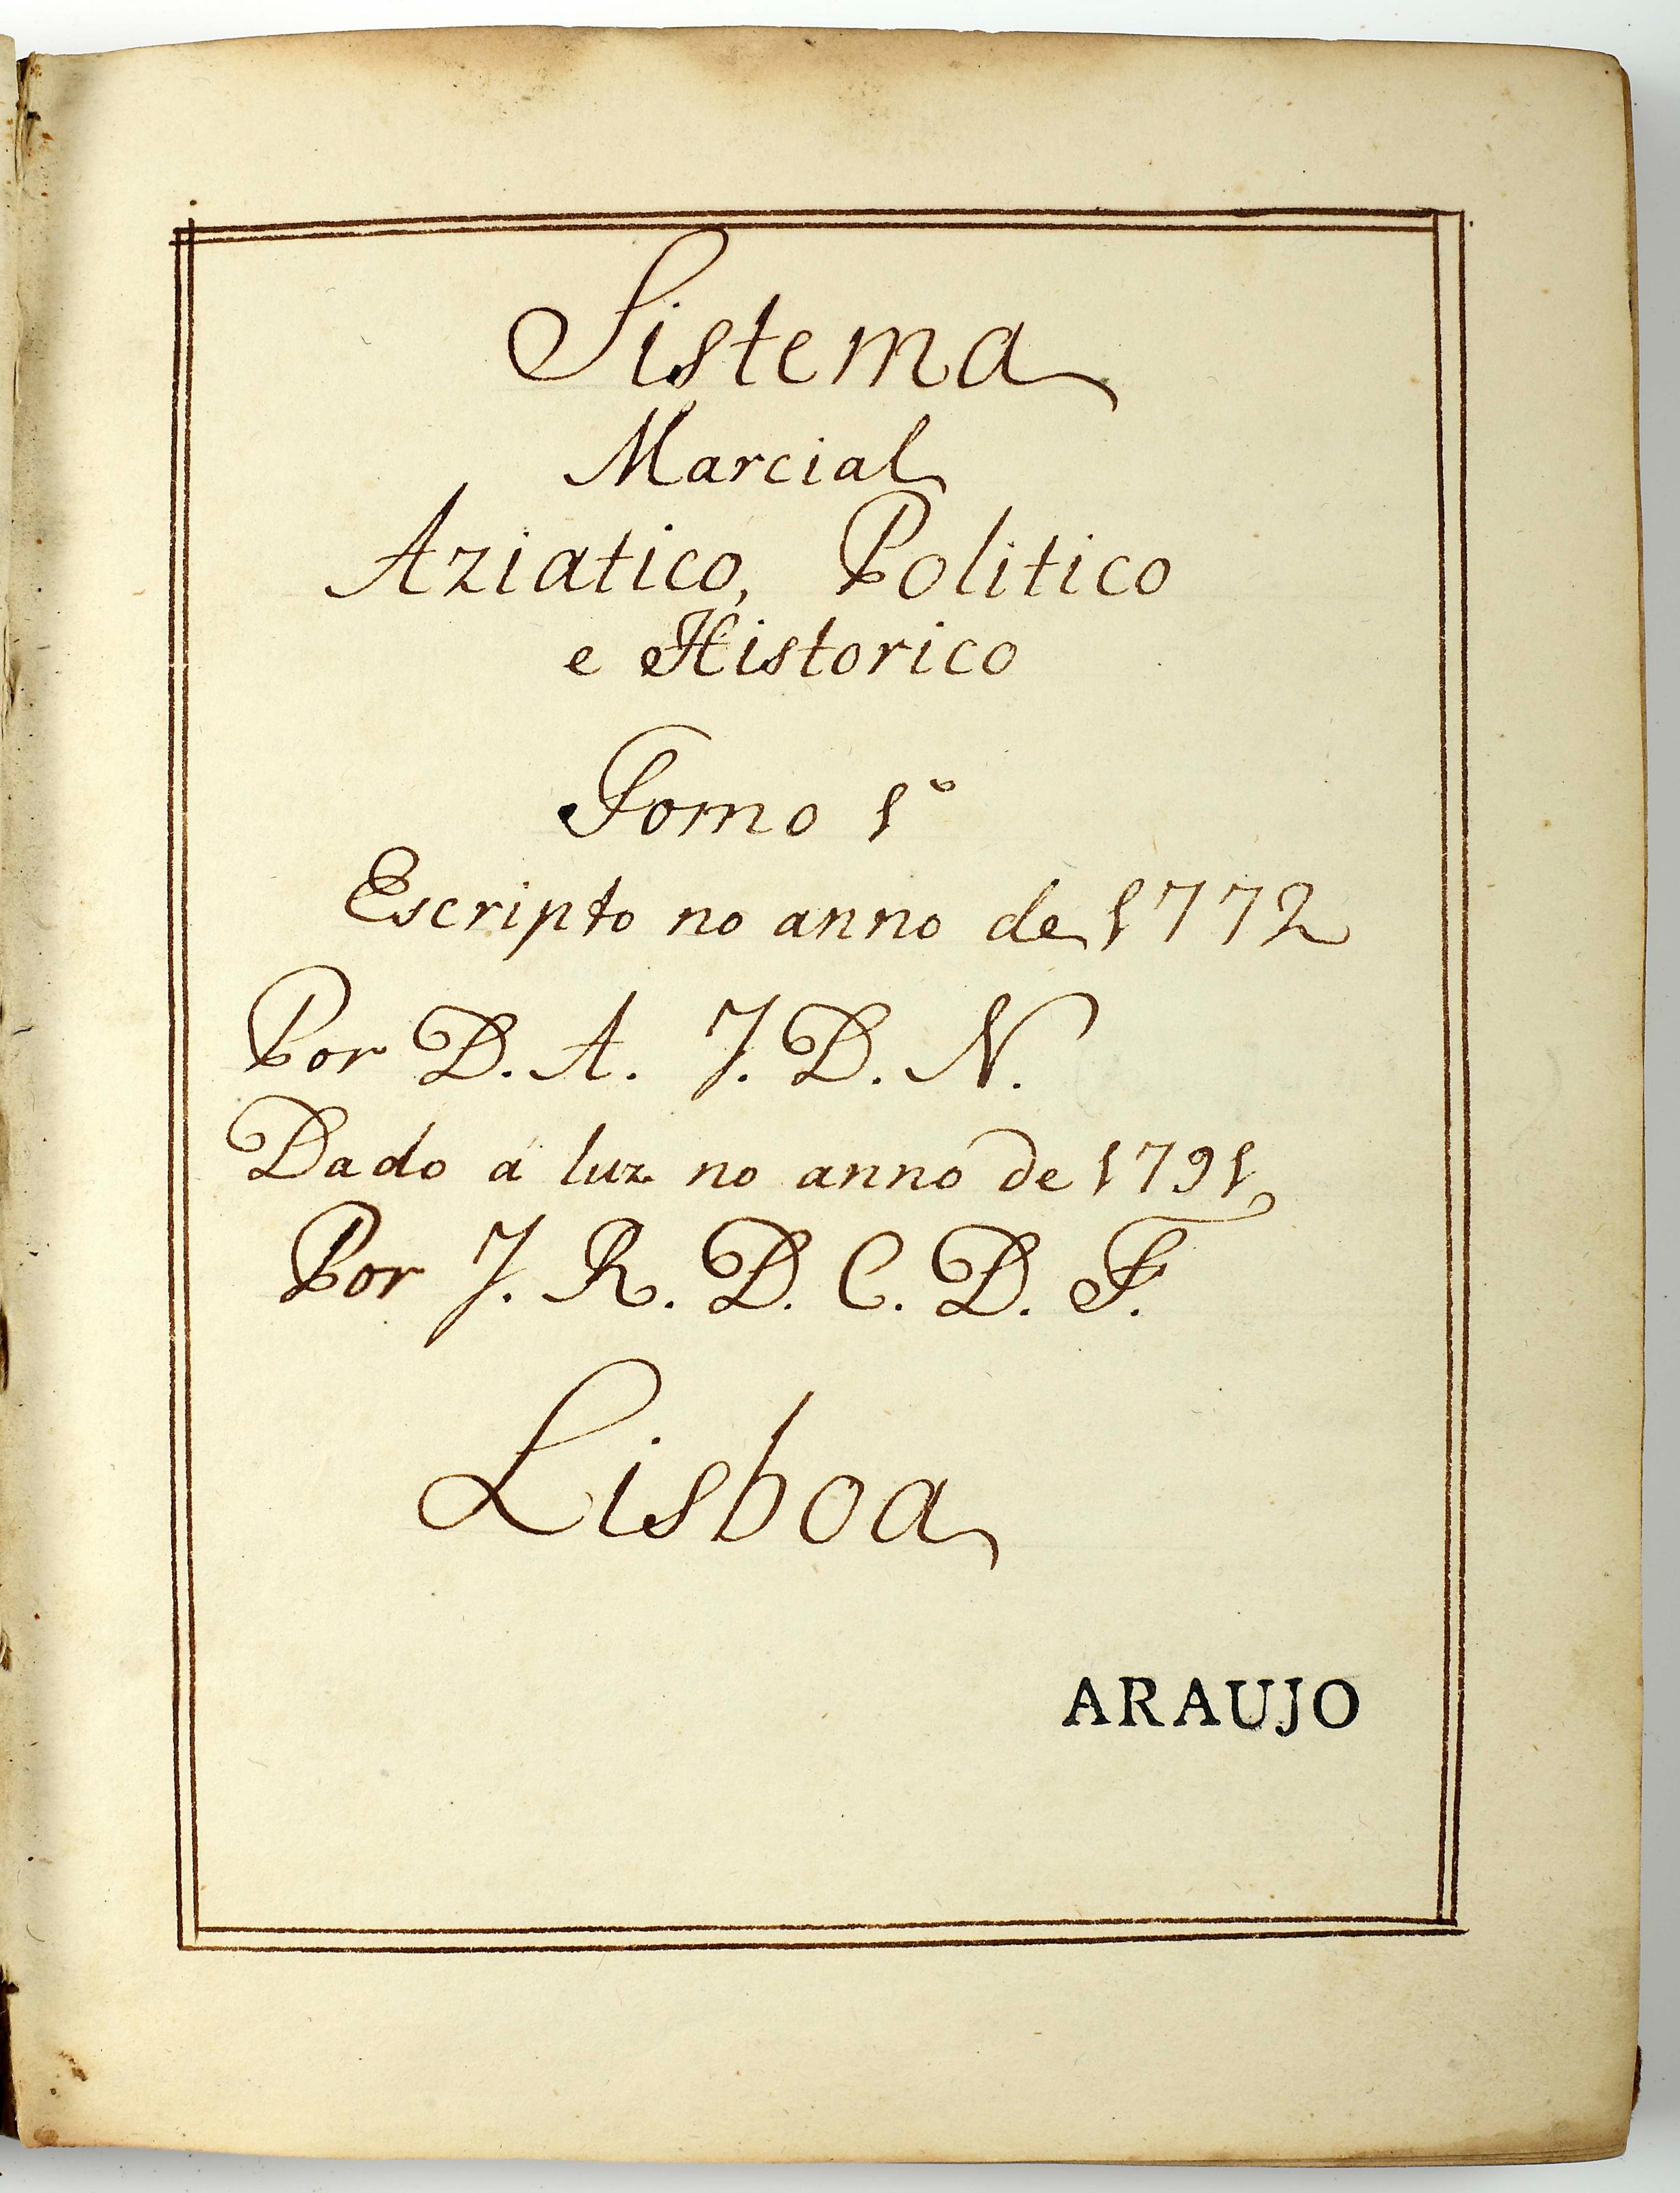 Sistema
Marcial
Aziatico, Politico
e Historico
Tomo 1º
Escripto no anno de 1772
Por D. A. J. D. N.
Dado á luz no anno de 1791
Por J. R. D. C. D. F.
Lisboa
ARAUJO